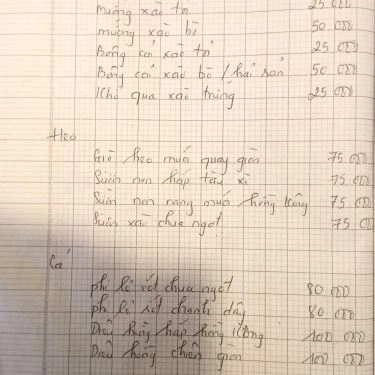 muống xào tỏi 25 000
muống xào bò 50 000
Bông cải xào tỏi 25 000
Bông cải xào bò / hải sản 50 000
Khổ qua xào trứng 25 000
Heo
Giò heo muối quay giòn 75 000
Sườn non hấp tàu xì 75 000
Sườn non rang muối hồng Kông 75 000
Sườn xào chua ngọt 75 000
Cá
phi lê sốt chua ngọt 80 000
phi lê sốt chanh dây 80 000
Diêu hồng hấp hồng Kông 100 000
Diêu hồng chiên giòn 100 000